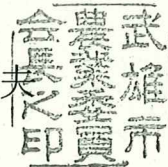 武雄市
農業委員
会長之印
夫